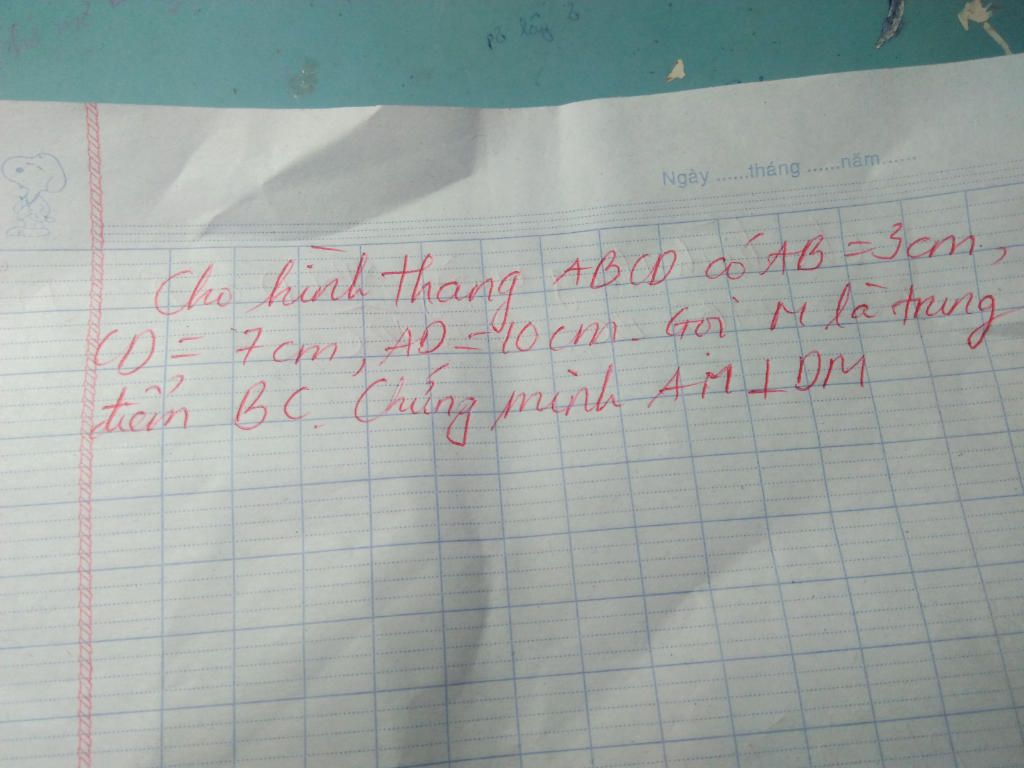 pb lấy
Ngày ......tháng ......năm......
Cho hình thang ABCD có AB = 3cm,
CD = 7cm, AD = 10cm. Gọi M là trung
điểm BC. Chứng minh AM ⊥ DM